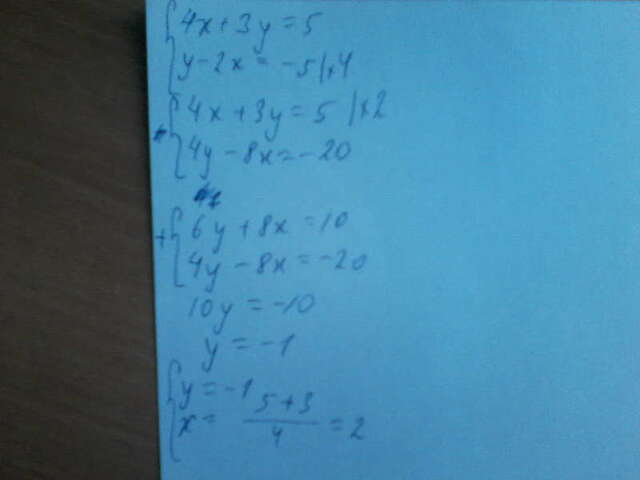 4x+3y=5
y-2x=-5|×4
4x+3y=5 |×2
4y-8x=-20
+ 6y+8x=10
4y-8x=-20
10y=-10
y=-1
y=-1
x= 5+3/4 =2